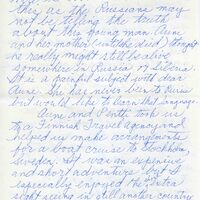 this, as the Russians may
not be telling the truth
about this young man. Anne
and her mother (until she died) thought
he really might still be alive
somewhere in Russia or Siberia.
It is a painful subject with dear
Anne. She has never been to Russia
but would like to learn that language.
Anne and Pentti took us
to a Finnish Travel Agency and
helped us make arrangements
for a boat cruise to Stockholm,
Sweden. It was an expensive
and short adventure, but I
especially enjoyed the extra
sight seeing in still another country